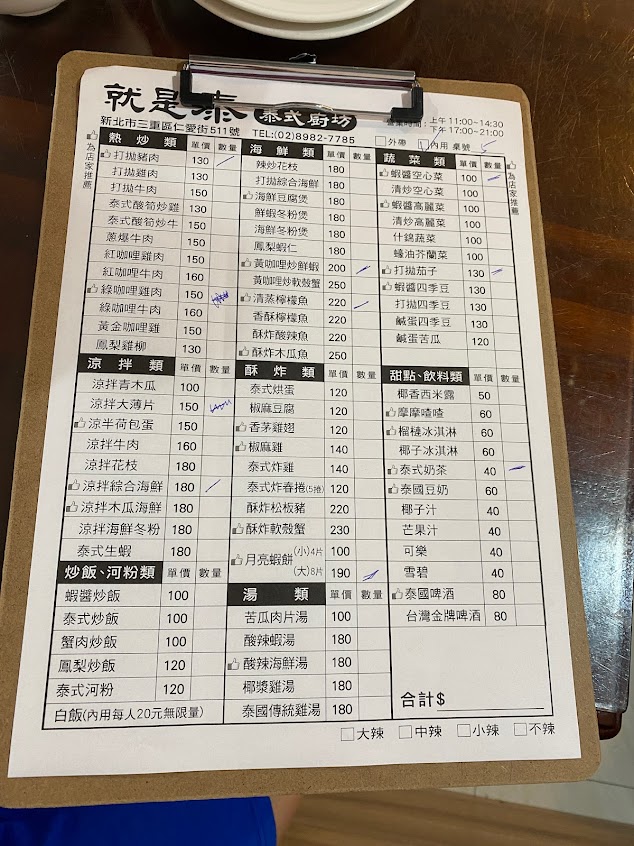 就是泰 泰式廚坊
營業時間：上午11:00~14:30
下午17:00~21:00
新北市三重區仁愛街511號 TEL:(02)8982-7785
外帶 內用 桌號 5
為店家推薦
熱炒類 單價 數量
打拋豬肉 130
打拋雞肉 130
打拋牛肉 150
泰式酸筍炒雞 130
泰式酸筍炒牛 150
蔥爆牛肉 150
紅咖哩雞肉 150
紅咖哩牛肉 160
綠咖哩雞肉 150
綠咖哩牛肉 160
黃金咖哩雞 150
鳳梨雞柳 130
涼拌類 單價 數量
涼拌青木瓜 100
涼拌大薄片 150
涼半荷包蛋 150
涼拌牛肉 160
涼拌花枝 180
涼拌綜合海鮮 180
涼拌木瓜海鮮 180
涼拌海鮮冬粉 180
泰式生蝦 180
炒飯、河粉類 單價 數量
蝦醬炒飯 100
泰式炒飯 100
蟹肉炒飯 100
鳳梨炒飯 120
泰式河粉 120
白飯(內用每人20元無限量)
海鮮類 單價 數量
辣炒花枝 180
打拋綜合海鮮 180
海鮮豆腐煲 180
鮮蝦冬粉煲 180
海鮮冬粉煲 180
鳳梨蝦仁 180
黃咖哩炒鮮蝦 200
黃咖哩炒軟殼蟹 250
清蒸檸檬魚 220
香酥檸檬魚 220
酥炸酸辣魚 220
酥炸木瓜魚 250
酥炸類 單價 數量
泰式烘蛋 120
椒麻豆腐 120
香茅雞翅 120
椒麻雞 140
泰式炸雞 140
泰式炸春捲(5捲) 120
酥炸松板豬 220
酥炸軟殼蟹 230
月亮蝦餅 (小)4片 100
(大)8片 190
湯類 單價 數量
苦瓜肉片湯 100
酸辣蝦湯 180
酸辣海鮮湯 180
椰漿雞湯 180
泰國傳統雞湯 180
蔬菜類 單價 數量
為店家推薦
蝦醬空心菜 100
清炒空心菜 100
蝦醬高麗菜 100
清炒高麗菜 100
什錦蔬菜 100
蠔油芥蘭菜 100
打拋茄子 130
蝦醬四季豆 130
打拋四季豆 130
鹹蛋四季豆 130
鹹蛋苦瓜 120
甜點、飲料類 單價 數量
椰香西米露 50
摩摩喳喳 60
榴槤冰淇淋 60
椰子冰淇淋 60
泰式奶茶 40
泰國豆奶 60
椰子汁 40
芒果汁 40
可樂 40
雪碧 40
泰國啤酒 80
台灣金牌啤酒 80
合計$
大辣 中辣 小辣 不辣